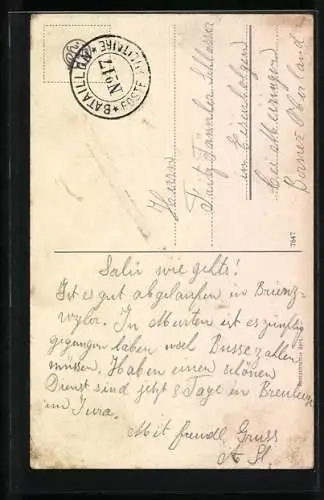 BATAILLON
No 17
POSTE MILITAIRE
Herrn
Fritz Tannler Schlosser
in Eisenbolgen
bei Meiringen
Berner Oberland
7647
Salü wie gehts!
Ist es gut abgelaufen in Brienz-
wyler. In Murten ist es zünftig
gegangen haben noch Busse zahlen
müssen. Haben einen schönen
Dienst sind jetzt 8 Tage in
im Jura.
Mit freundl. Gruss
A St.